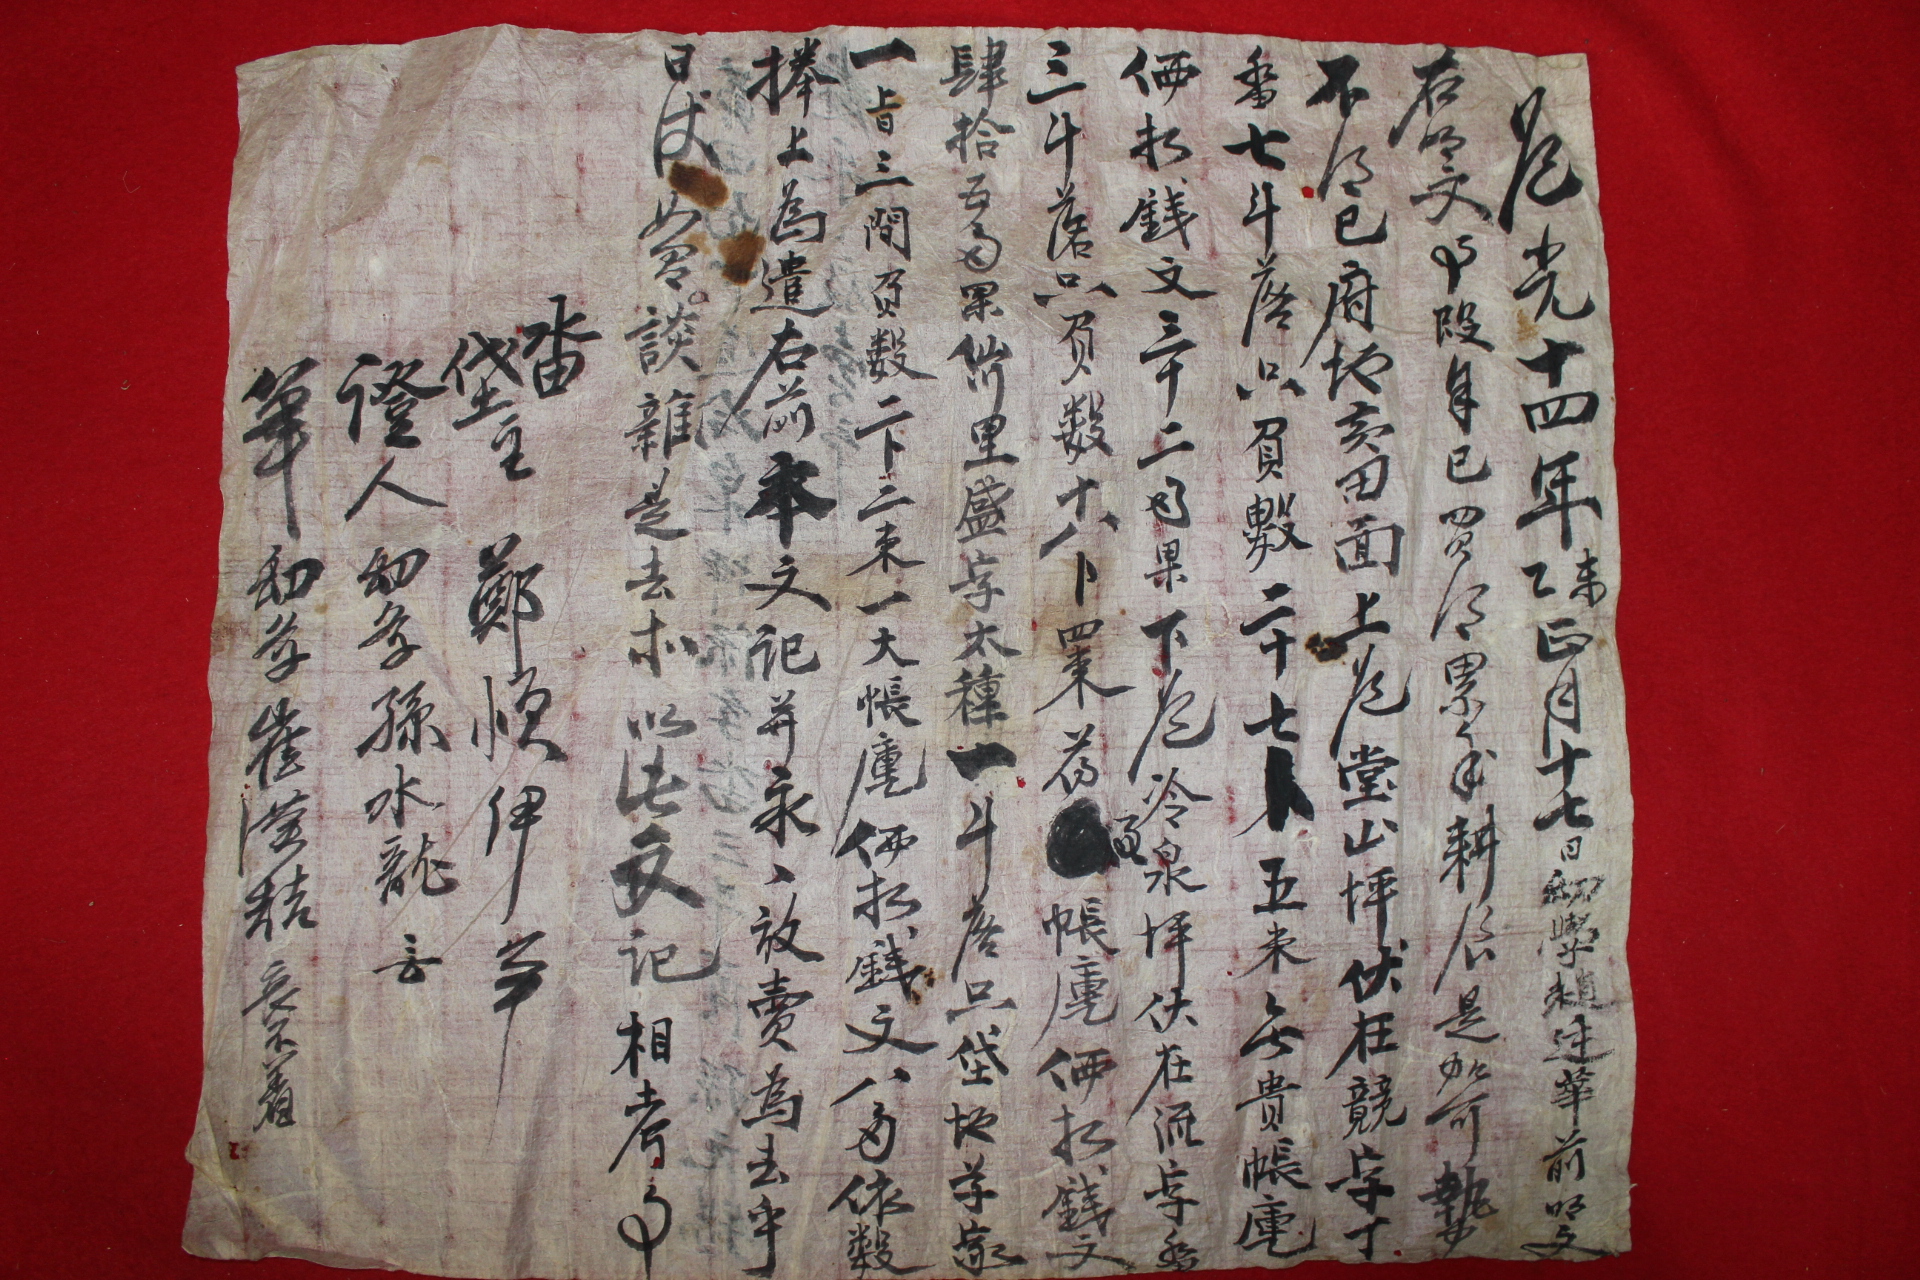 道光十四年乙未正月十七日幼學趙連華前明文
右明文事段自己買得累年耕食是如可勢
不得已府地亥田面上道堂山坪伏在競字丁
畓七斗落只負數二十七卜五束㐣貴帳庫
価折錢文三十二兩果下道冷泉坪伏在流字畓
三斗落只負數十八卜四束㐣帳庫価折錢文
肆拾五兩果 里盛字太種一斗落只垈地草家
一旨三間負數二卜二束一大帳庫価折錢文八兩依數
捧上為遣右前本文記并永、放賣為去乎
日後如有談雜是去木以此文記相考事
畓垈主 鄭順伊
證人 幼學孫水龍
筆 幼學崔漢 喪不着